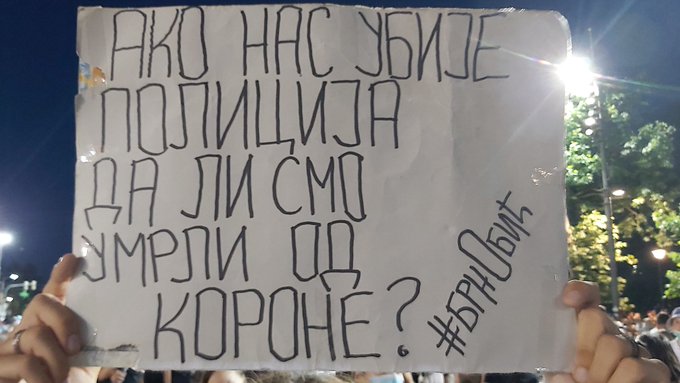 АКО НАС УБИЈЕ
ПОЛИЦИЈА
ДА ЛИ СМО
УМРЛИ ОД
КОРОНЕ?
#БРНОБИЋ